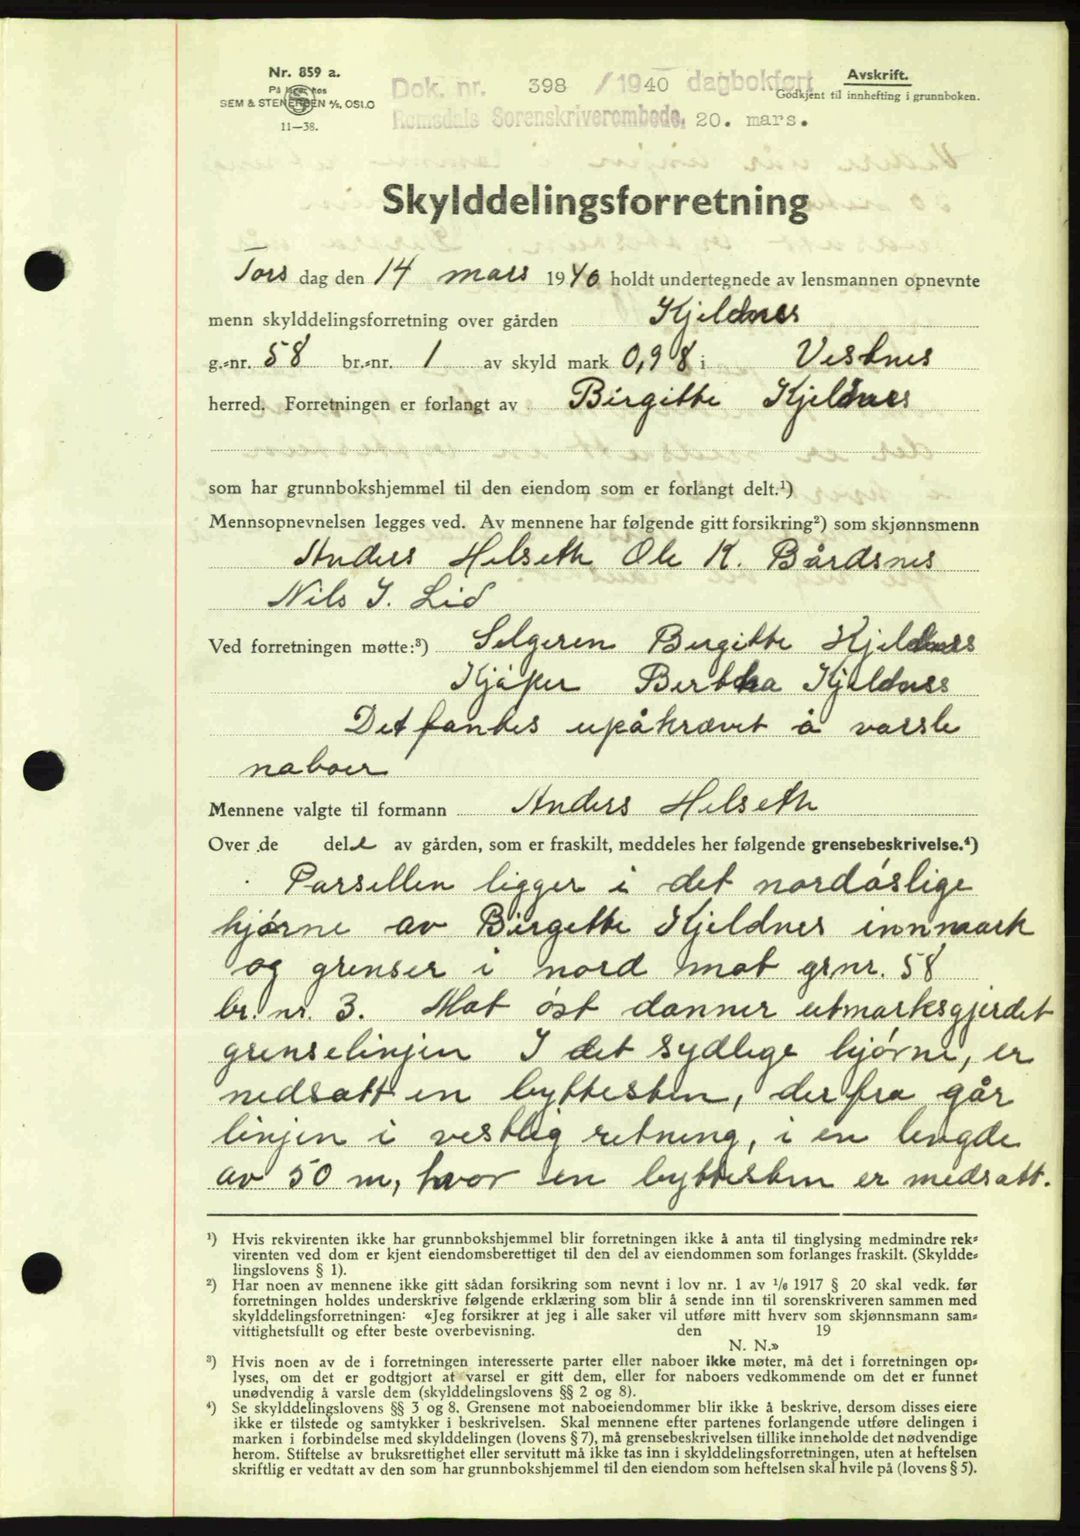 Nr. 859 a.
På lager hos
SEM & STENERSEN A/S, OSLO
11—38.
Dok. nr. 398 /1940 dagbokført
Romsdals Sorenskriverembede, 20. mars.
Avskrift.
Godkjent til innhefting i grunnboken.
Skylddelingsforretning
Tors dag den 14 mars 1940 holdt undertegnede av lensmannen opnevnte
menn skylddelingsforretning over gården Kjeldnes
g.-nr. 58 br.-nr. 1 av skyld mark 0,98 i Vestnes
herred. Forretningen er forlangt av Birgitte Kjeldnes
som har grunnbokshjemmel til den eiendom som er forlangt delt.¹)
Mennsopnevnelsen legges ved. Av mennene har følgende gitt forsikring²) som skjønnsmenn
Anders Helseth Ole K. Bårdsnes
Nils J. Lid
Ved forretningen møtte:³) Selgeren Birgitte Kjeldnes
Kjøper Bertha Kjeldnes
Det fantes upåkrævet å varsle
naboer
Mennene valgte til formann Anders Helseth
Over de del e av gården, som er fraskilt, meddeles her følgende grensebeskrivelse.⁴)
Parsellen ligger i det nordøslige
hjørne av Birgitte Kjeldnes innmark
og grenser i nord mot grnr. 58
br. nr. 3. Mot øst danner utmarksgjerdet
grenselinjen I det sydlige hjørne, er
nedsatt en byttesten, derfra går
linjen i vestlig retning, i en lengde
av 50 m, hvor en byttesten er nedsatt.
¹) Hvis rekvirenten ikke har grunnbokshjemmel blir forretningen ikke å anta til tinglysing medmindre rek-
virenten ved dom er kjent eiendomsberettiget til den del av eiendommen som forlanges fraskilt. (Skyldde-
lingslovens § 1).
²) Har noen av mennene ikke gitt sådan forsikring som nevnt i lov nr. 1 av 1/6 1917 § 20 skal vedk. før
forretningen holdes underskrive følgende erklæring som blir å sende inn til sorenskriveren sammen med
skylddelingsforretningen: «Jeg forsikrer at jeg i alle saker vil utføre mitt hverv som skjønnsmann sam-
vittighetsfullt og efter beste overbevisning. den 19
N. N.»
³) Hvis noen av de i forretningen interesserte parter eller naboer ikke møter, må det i forretningen op-
lyses, om det er godtgjort at varsel er gitt dem, eller for naboers vedkommende om det er funnet
unødvendig å varsle dem (skylddelingslovens §§ 2 og 8).
⁴) Se skylddelingslovens §§ 3 og 8. Grensene mot naboeiendommer blir ikke å beskrive, dersom disses eiere
ikke er tilstede og samtykker i beskrivelsen. Skal mennene efter partenes forlangende utføre delingen i
marken i forbindelse med skylddelingen (lovens § 7), må grensebeskrivelsen tillike inneholde det nødvendige
herom. Stiftelse av bruksrettighet eller servitutt må ikke tas inn i skylddelingsforretningen, uten at heftelsen
skriftlig er vedtatt av den som har grunnbokshjemmel til den eiendom som heftelsen skal hvile på (lovens § 5).